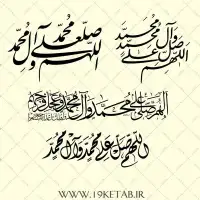 اللهم صل علی محمد و آل محمد
اللهم صل علی محمد و آل محمد
اللهم صل علی محمد و آل محمد و عجل فرجهم
اللهم صل علی محمد و آل محمد
WWW.19KETAB.IR